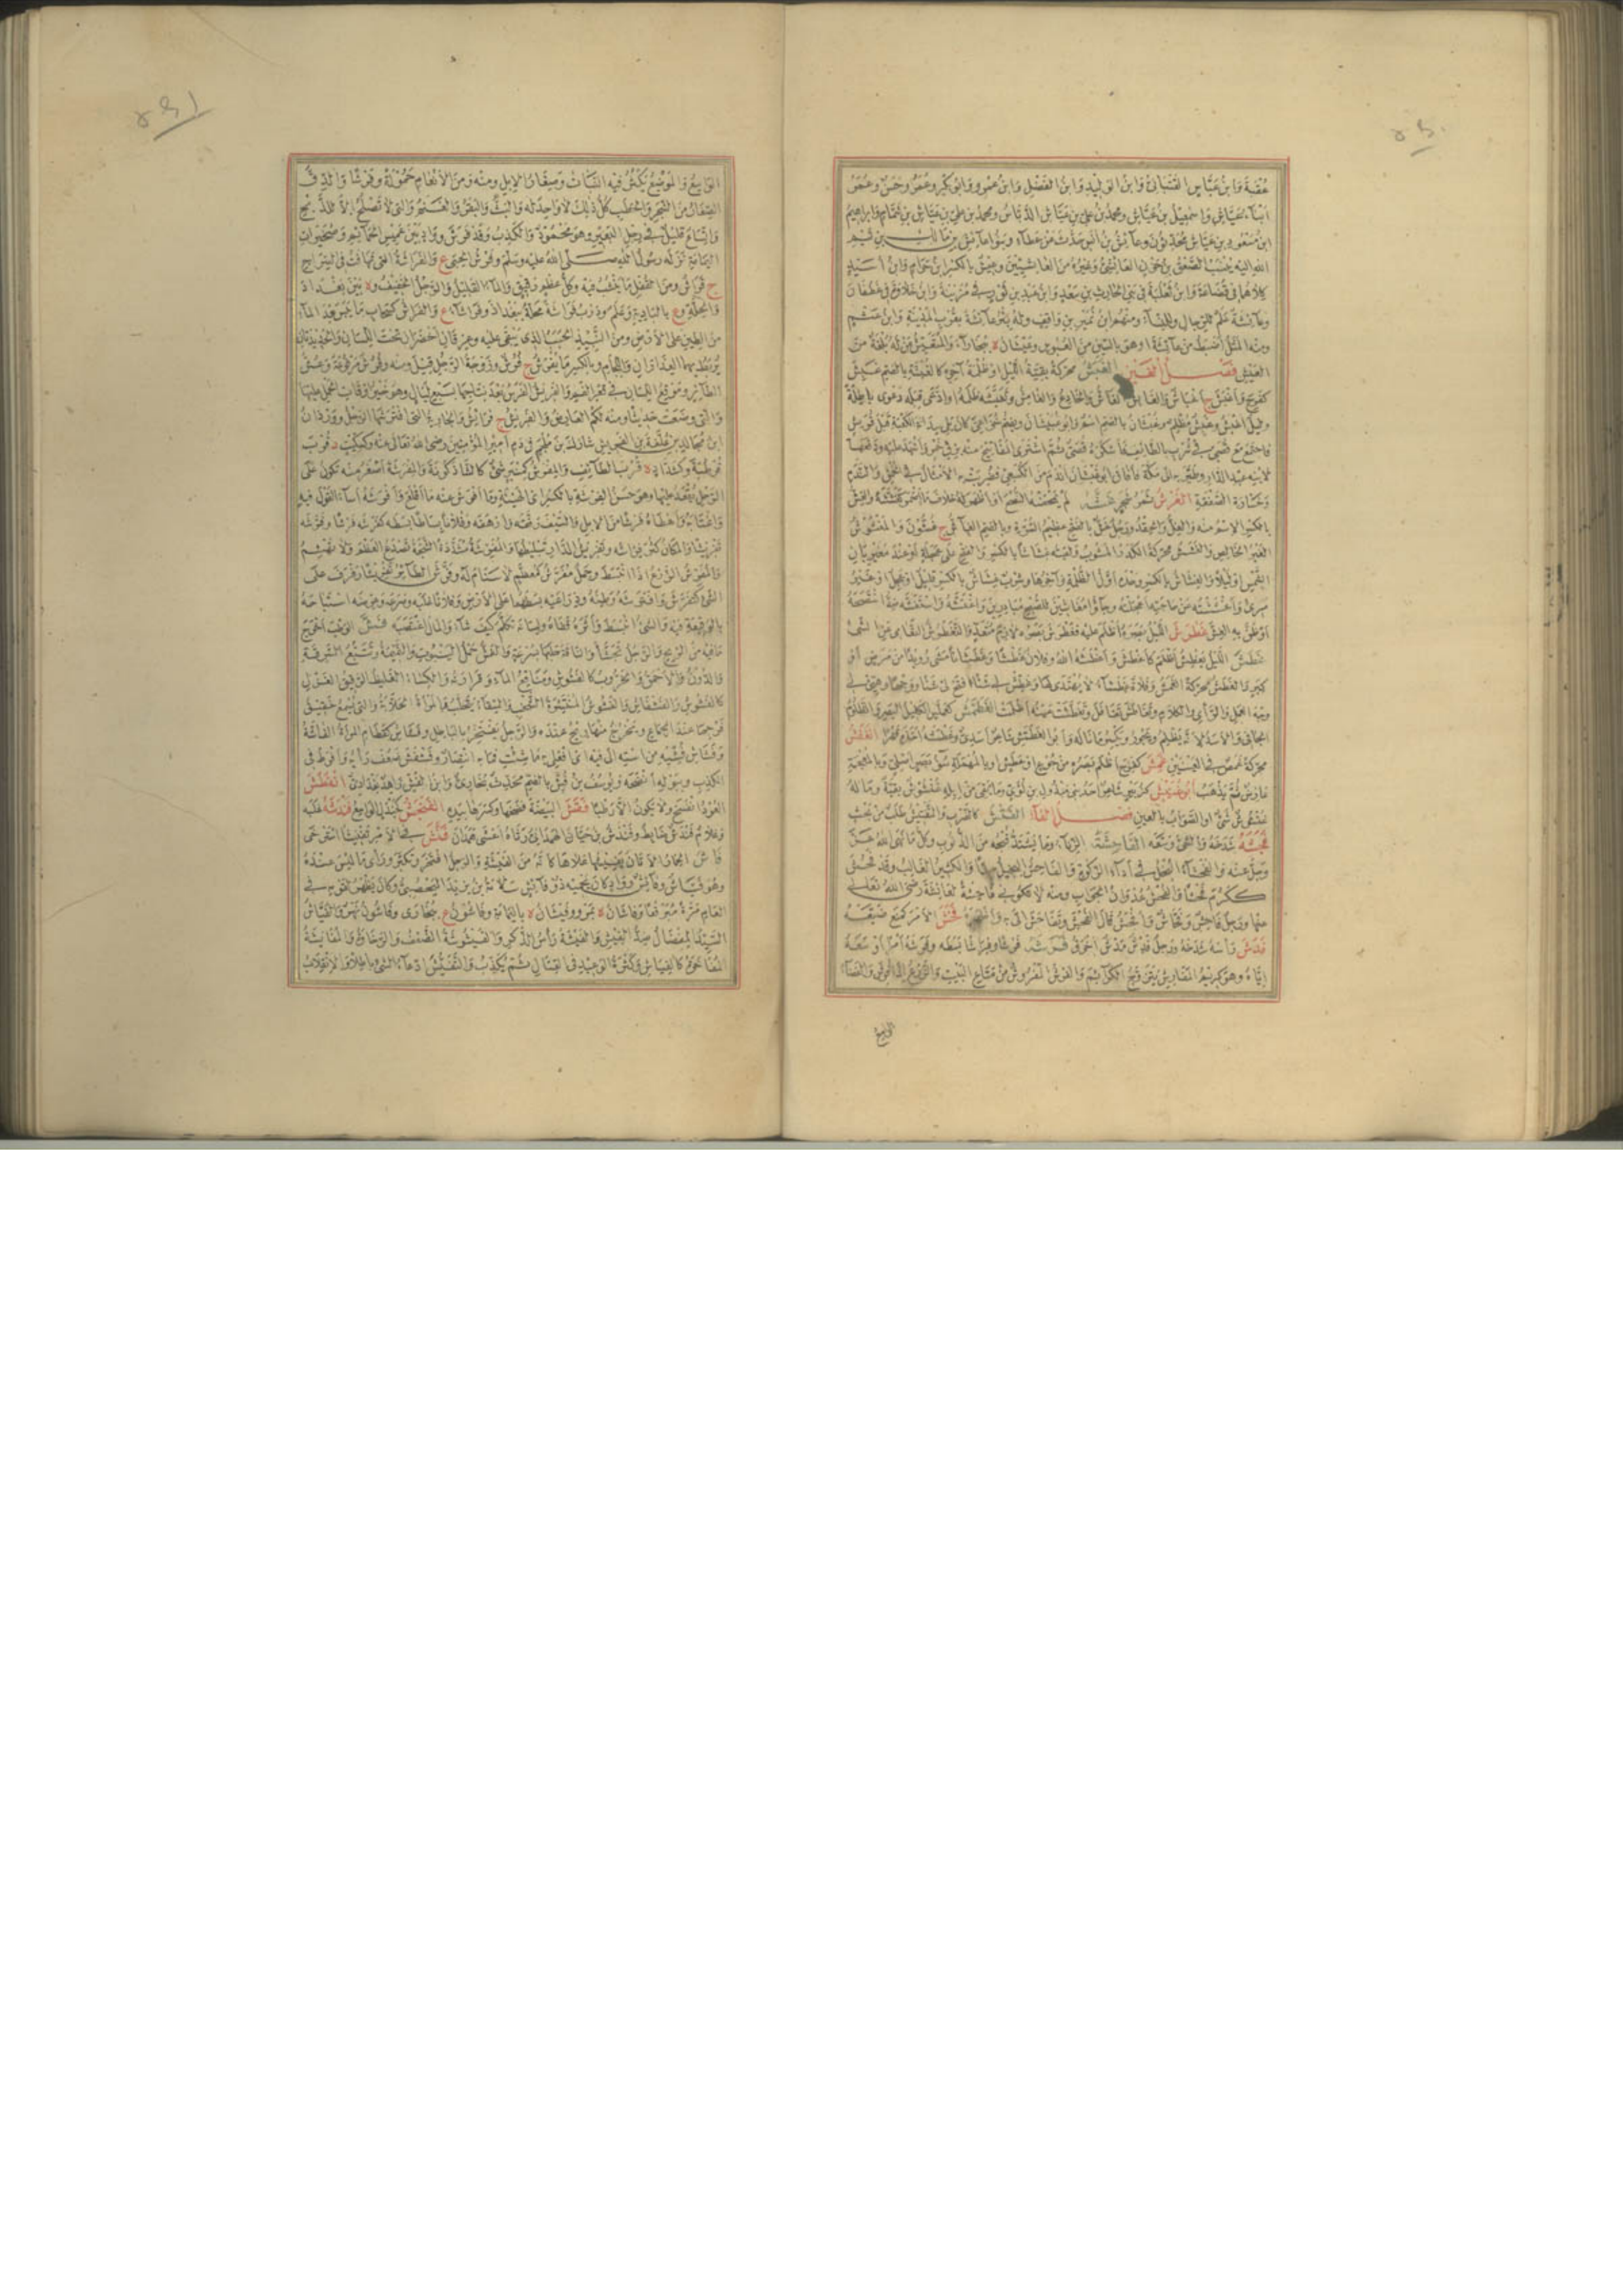 عُقبة وابن عباس القتباني وابن الوليد وابن الفضل وابن عمرو وابو بكر وعمر وحسن وعمر
ابنا عياش واسمعيل بن عياش ومحمد بن علي بن عياش الدباس ومحمد بن علي بن عياش بن ثمام وابراهيم
ابن مسعود بن عياش محدثون وعائش بن انس حدث عن عطاء وبنو عائش بن مالك بن تيم
الله اليه ينسب الصعق بن حزن العائشي وغيره من العائشيين وعيش بالكسر ابن حرام وابن اسيد
كلاهما في قضاعة وابن ثعلبة في بني الحارث بن سعد وابن عبد بن ثور في مزينة وابن خلاوة في غطفان
وعائشة علم للرجال وللنساء ومنهم ابن نمير بن واقف وله بئر عائشة بقرب المدينة وابن عثم
ومنه المثل اضبط من عائشة او هو بالسين من العبوس وعيشان ة ببخاراء والمتعيش من له بلغة من
العيش فصل الغين الغبش محركة بقية الليل او ظلمة آخره كالغبشة بالضم غبش
كفرح واغبش ج اغباش والغابش الغاش والخادع والغامش وتغبشه ظلمه او ادعى قبله دعوى باطلة
وليل اغبش وغبش مظلم وغبشان بالضم اسم وابو غبشان ويضم خزاعي كان يلي سدانة الكعبة قبل قريش
فاجتمع مع قصي في شرب بالطائف فاسكره قصي ثم اشترى المفاتيح منه بزق خمر واشهد عليه ودفعها
لابنه عبد الدار وطير به الى مكة فافاق ابو غبشان اندم من الكسعي فضربت به الامثال في الحمق والندم
وخسارة الصفقة الغرش ثمر شجر غشه لم يمحضه النصح او اظهر له خلاف ما اضمر كغششه والغش
بالكسر الاسم منه والغل والحقد ورجل غش بالفتح عظيم السرة وبالضم الغاش ج غشون والمغشوش
الغير الخالص والغشش محركة الكدر المشوب ولقيته غشاشا بالكسر والفتح على عجلة او عند مغيربان
الشمس او ليلا والغشاش بالكسر وحده اول الظلمة وآخرها وشرب غشاش بالكسر قليل او عجل او غير
مريء واغششته عن حاجته اعجلته وجاؤا مغاشين للصبح مبادرين واغتشه واستغشه ضد استنصحه
او ظن به الغش غطرش الليل بصره اظلم عليه فغطرش بصره لازم متعد والتغطرش التعامي عن الشيء
غطش الليل يغطش اظلم كاغطش واغطشه الله وفلان غطشا وغطشانا مشى رويدا من مرض او
كبر والغطش محركة الغمش وفلاة غطشاء لا يهتدى لها وغطش لي شيئا افتح لي شيئا ووجها وهيئ لي
وجه العمل والرأي والكلام وتغاطش تغافل وتغطشت عينه اظلمت الغطمش كعملس الكليل البصر والظلوم
الجافي والاسد لانه يظلم ويجور ويكسر ما ناله وابو الغطمش شاعر اسدي وغطمشه اخذه قهرا الغفش
محركة غمص في العينين غمش كفرح اظلم بصره من جوع او عطش او بالمهملة سوء بصر اصلي وبالمعجمة
عارض ثم يذهب ابو غنيش كزبير شاعر احد بني مبذول بن لؤي وما بقي من ابله غنشوش بقية وما له
غنشوش شيء او الصواب بالعين فصل الفاء الفتش كالضرب والتفتيش طلب في بحث
فجشه شدخه والشيء وسعه الفاحشة الزنا وما يشتد قبحه من الذنوب وكل ما نهى الله عز
وجل عنه والفحشاء البخل في اداء الزكاة والفاحش البخيل جدا والكثير الغالب وقد فحش
ككرم فحشا والفحش عدوان الجواب ومنه لا تكوني فاحشة لعائشة رضي الله تعالى
عنها ورجل فاحش وفحاش وافحش قال الفحش وتفاحش اتى به فخش الامر كمنع ضيعه
فدش رأسه شدخه ورجل فدش مدش اخرق فرش فرشا وفراشا بسطه وفرشه امرا اوسعه
اياه وهو كريم المفارش يتزوج الكرائم والفرش المفروش من متاع البيت والزرع اذا فرش والفضاء
الواسع
الواسع والموضع يكثر فيه النبات وصغار الابل ومنه ومن الانعام حمولة وفرشا والدق
الصغار من الشجر والحطب كل ذلك لا واحد له والبث والبقر والغنم والتي لا تصلح الا للذبح
واتساع قليل في رجل البعير وهو محمود والكذب وقد فرش وواد بين عميس الحمائم وصخيرات
اليمامة نزله رسول الله صلى الله عليه وسلم وفرش الجبا ع والفراشة التي تهافت في السراج
ج فراش ومن القفل ما ينشب فيه وكل عظم رقيق والماء القليل والرجل الخفيف وة بين بغداذ
والحلة وع بالبادية وعلم ودرب فراشة محلة ببغداذ وفراشاء ع والفراش كسحاب ما يبس بعد الماء
من الطين على الارض ومن النبيذ الحبب الذي يبقى عليه وعرقان اخضران تحت اللسان والحديدتان
يربط بهما العذاران في اللجام وبالكسر ما يفرش ج فرش وزوجة الرجل قيل ومنه وفرش مرفوعة وعش
الطائر وموقع اللسان في قعر الفم والفريش الفرس بعد نتاجها بسبع ليال وهو خير اوقات الحمل عليها
والتي وضعت حديثا ومنه لكم العارض والفريش ج فرائش والجارية التي افترشها الرجل ووردان
ابن مجالد بن علفة بن الفريش شارك ابن ملجم في دم امير المؤمنين رضي الله تعالى عنه وكسكيت د قرب
قرطبة وكشداد ة قرب الطائف والمفرش كمنبر شيء كالشاذكونة والمفرشة اصغر منه تكون على
الرحل يقعد عليها وهو حسن الفرشة بالكسر اي الهيئة وما افرش عنه ما اقلع وافرشه اساء القول فيه
واغتابه واعطاه فرشا من الابل والسيف رققه وارهفه وفلانا بساطا بسطه كفرشه فرشا وفرشه
تفريشا والمكان كثر فراشه وتفريش الدار تبليطها والمفرشة مشددة الشجة تصدع العظم ولا تهشم
والمفرش الزرع اذا انبسط وجمل مفرش كمعظم لا سنام له وفرش الطائر تفريشا رفرف على
الشيء كتفرش وافترشه وطئه وذراعيه بسطهما على الارض وفلانا غلبه وصرعه وعرضه استباحه
بالوقيعة فيه والشيء انبسط واثره قفاه ولسانه تكلم كيف شاء والمال اغتصبه فش الوطب اخرج
ما فيه من الريح والرجل تجشأ والناقة حلبها بسرعة والفش حمل الينبوت والنميمة وتتبع السرقة
والدون والاحمق والخروب كالفشوش ومناقع الماء وقراره والكساء الغليظ الرقيق الغزل
كالفشوش والفشفاش والفشوش المنتشرة الشخب والسقاء يتحلب والمرأة الخلابة والتي يسمع خفيق
فرجها عند الجماع ويخرج منها ريح عنده والرجل يفتخر بالباطل وفشاش كقطام المرأة الفاشة
وفشاش فشيه من استه الى فيه اي افعلي به ما شئت فما به انتصار وفشفش ضعف رأيه وافرط في
الكذب وببوله انضحه ويوسف بن فش بالضم محدث بخاري وابن الفش زاهد بغدادي انفطش
العود انفسخ ولا يكون الا رطبا فقش البيضة فضخها وكسرها بيده الفنجش كجندل الواسع فندشه غلبه
وغلام فندش ضابط وفندش بن حيان الهمداني رثاه اعشى همدان فنش في الامر تفنيشا استرخى
فاش الحمار الاتان يفيشها علاها كأنه من الفيشة والرجل افتخر وتكبر ورأى ما ليس عنده
وهو فياش وفائش وواد كان يحميه ذو فائش سلامة بن يزيد اليحصبي وكان يظهر لقومه في
العام مرة مبرقعا وفاشان ة بمرو وفيشان ة باليمامة وفاشون ع ببخارى وفاشون نهر والفياش
السيد المفضال ضد الفيش والفيشة رأس الذكر والفيشوشة الضعف والرخاوة والمفايشة
المفاخرة كالفياش وكثرة الوعيد في القتال ثم يكذب والتفيش ادعاء الشيء باطلا والانقلاب